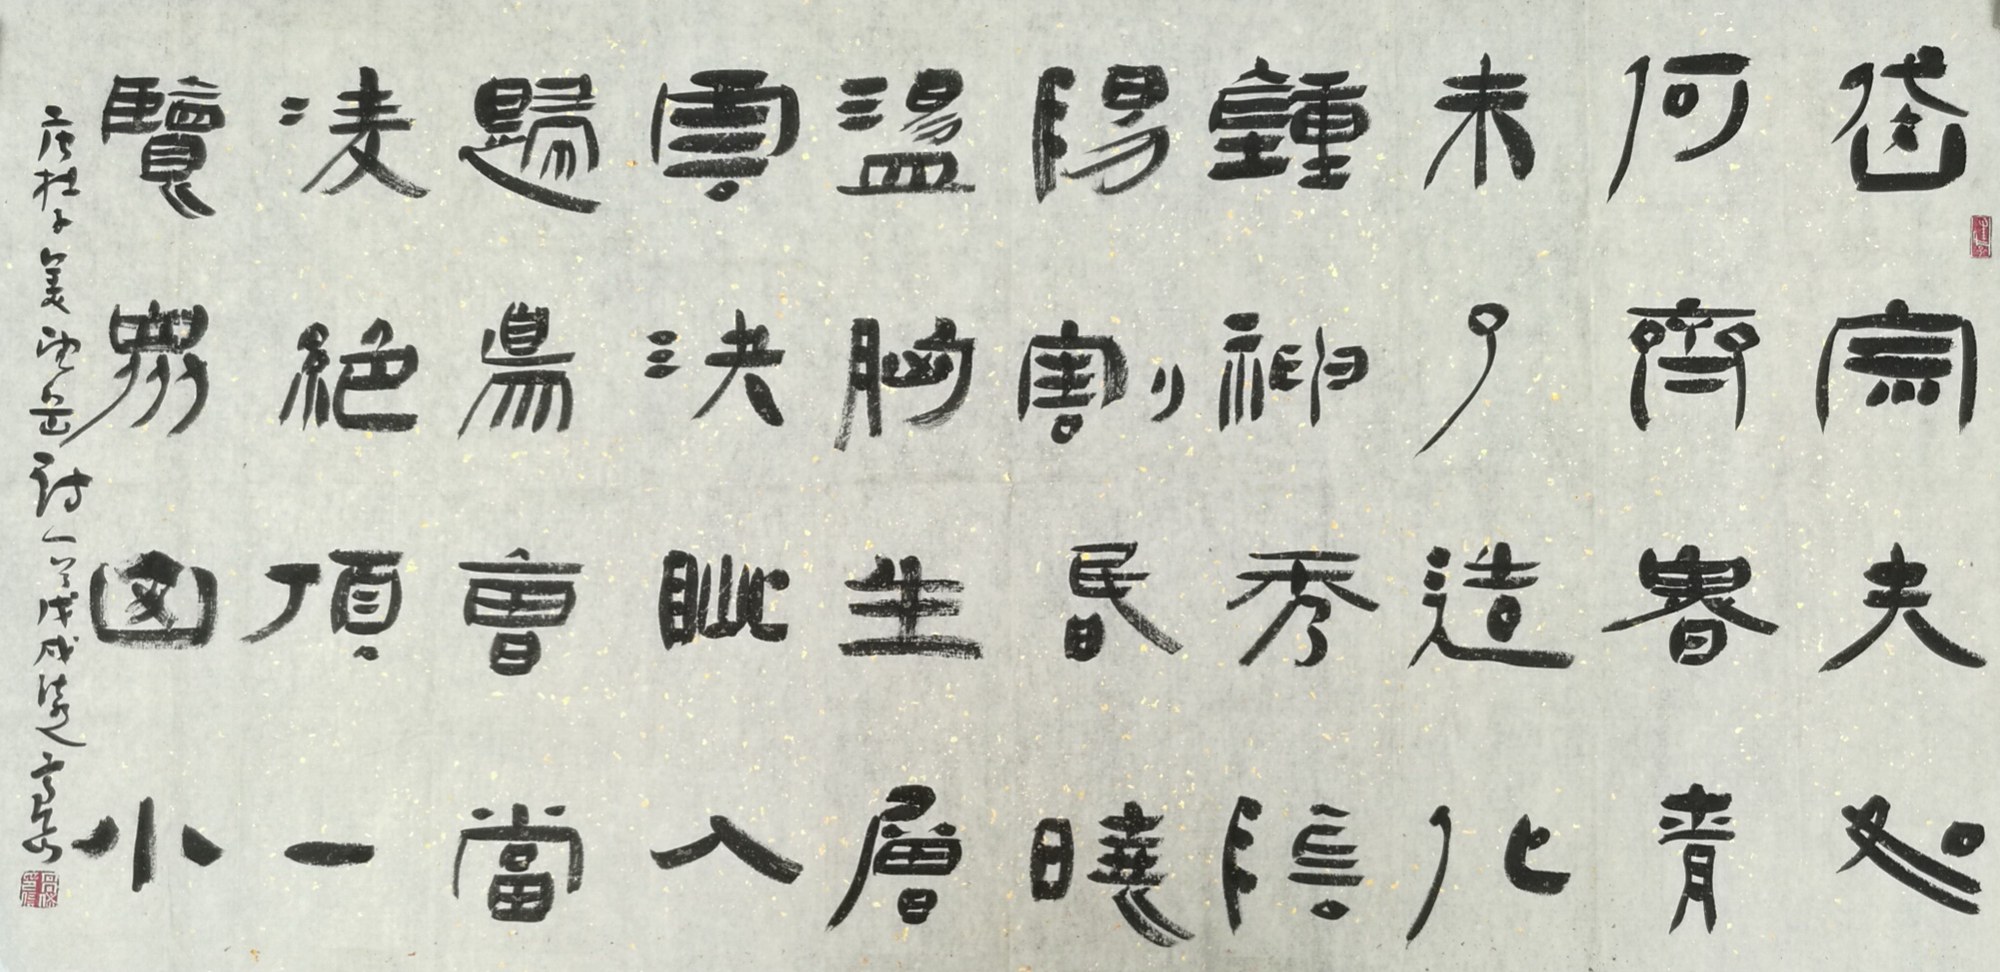 岱宗夫如
何齊魯青
未了造化
鍾神秀陰
陽割昬曉
盪胸生層
雲決眦入
歸鳥會當
凌絕頂一
覽眾山小
唐杜子美望岳詩一首戊戌